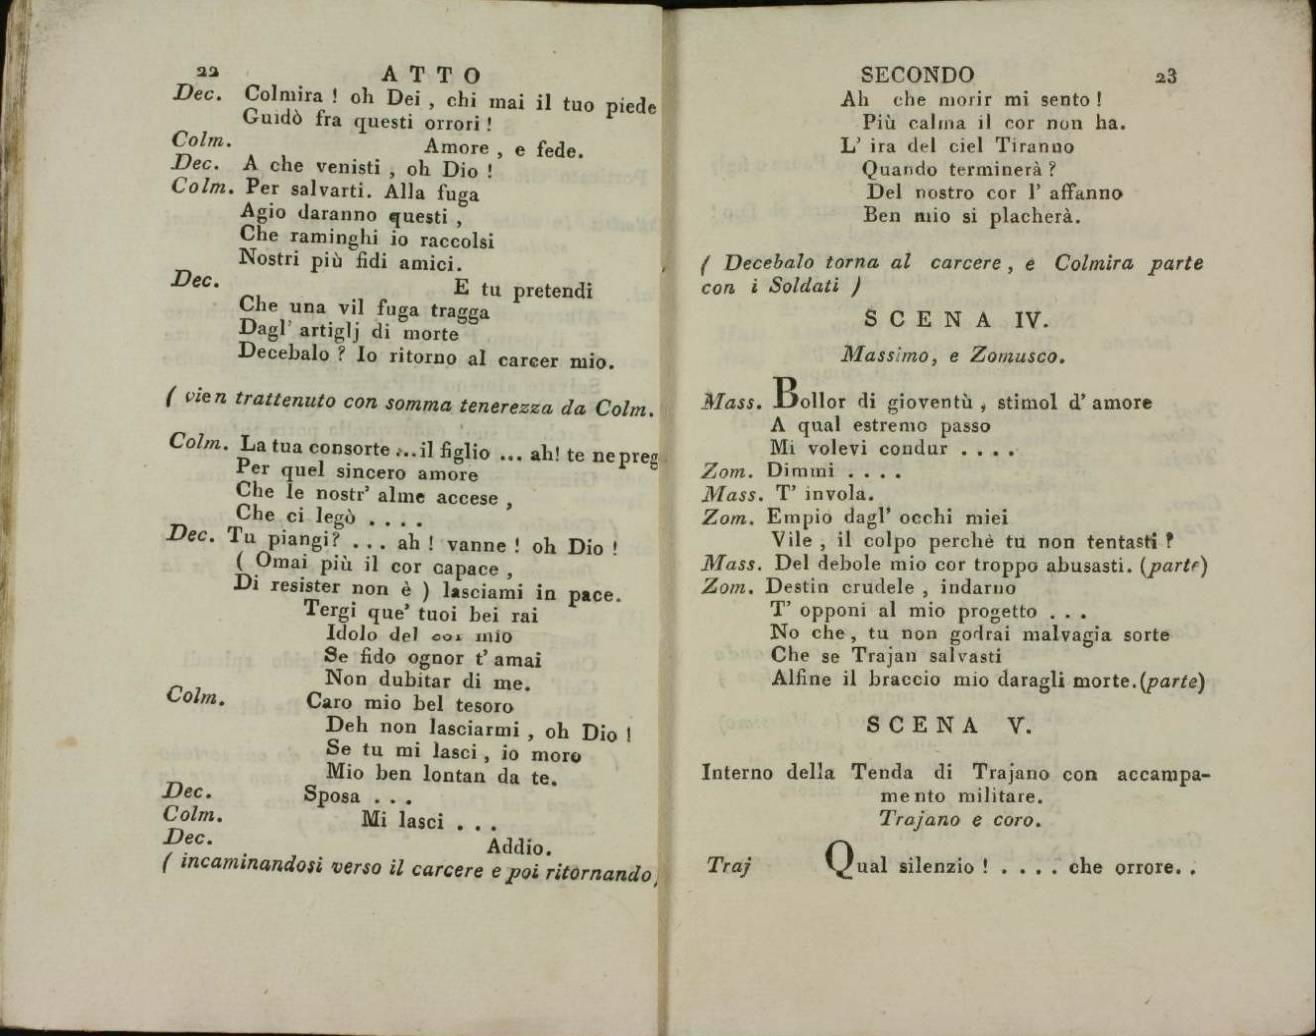 22 ATTO
Dec. Colmira ! oh Dei , chi mai il tuo piede
Guidò fra questi orrori !
Colm. Amore , e fede.
Dec. A che venisti , oh Dio !
Colm. Per salvarti. Alla fuga
Agio daranno questi ,
Che raminghi io raccolsi
Nostri più fidi amici.
Dec. E tu pretendi
Che una vil fuga tragga
Dagl' artiglj di morte
Decebalo ? Io ritorno al carcer mio.
( vien trattenuto con somma tenerezza da Colm.
Colm. La tua consorte ... il figlio ... ah! te ne preg
Per quel sincero amore
Che le nostr' alme accese ,
Che ci legò . . . .
Dec. Tu piangi? . . . ah ! vanne ! oh Dio !
( Omai più il cor capace ,
Di resister non è ) lasciami in pace.
Tergi que' tuoi bei rai
Idolo del cor mio
Se fido ognor t' amai
Non dubitar di me.
Colm. Caro mio bel tesoro
Deh non lasciarmi , oh Dio !
Se tu mi lasci , io moro
Mio ben lontan da te.
Dec. Sposa . . .
Colm. Mi lasci . . .
Dec. Addio.
( incaminandosi verso il carcere e poi ritornando)
SECONDO 23
Ah che morir mi sento !
Più calma il cor non ha.
L' ira del ciel Tiranno
Quando terminerà ?
Del nostro cor l' affanno
Ben mio si placherà.
( Decebalo torna al carcere , e Colmira parte
con i Soldati )
SCENA IV.
Massimo, e Zomusco.
Mass. Bollor di gioventù , stimol d' amore
A qual estremo passo
Mi volevi condur . . . .
Zom. Dimmi . . . .
Mass. T' invola.
Zom. Empio dagl' occhi miei
Vile , il colpo perchè tu non tentasti ?
Mass. Del debole mio cor troppo abusasti. (parte)
Zom. Destin crudele , indarno
T' opponi al mio progetto . . .
No che , tu non godrai malvagia sorte
Che se Trajan salvasti
Alfine il braccio mio daragli morte. (parte)
SCENA V.
Interno della Tenda di Trajano con accampa-
mento militare.
Trajano e coro.
Traj Qual silenzio ! . . . . che orrore. .